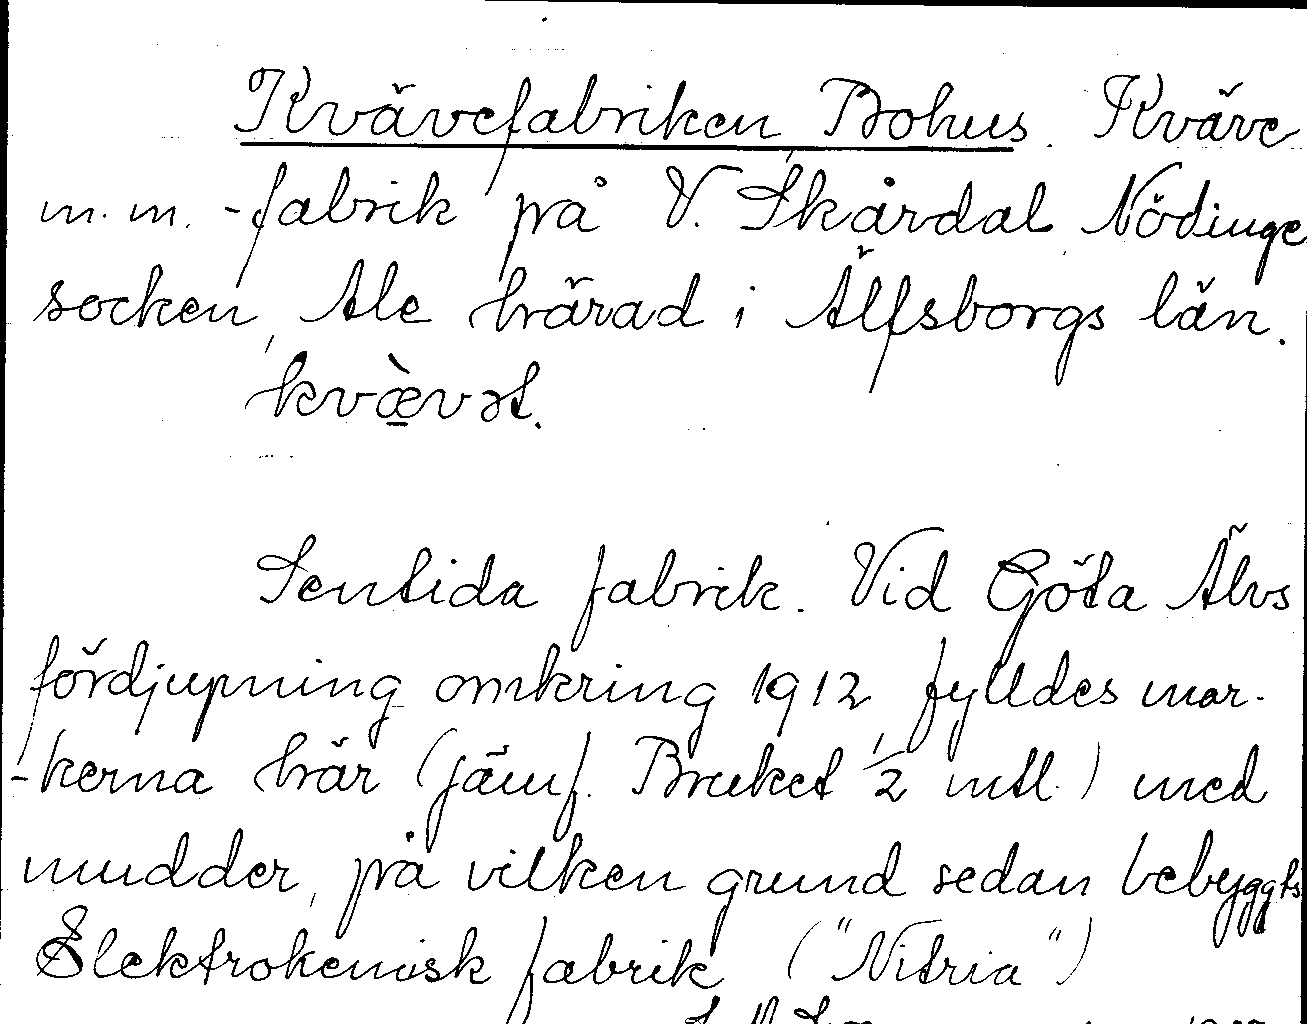 Kvävefabriken Bohus. Kväve
m.m. -fabrik på V. Skårdal, Nödinge
socken, Ale härad i Älfsborgs län.
kvæ̀vət.
Sentida fabrik. Vid Göta Älvs
fördjupning omkring 1912, fylldes mar-
-kerna här (jämf. Bruket 1/2 mtl.) med
mudder, på vilken grund sedan bebyggts
Elektrokemisk fabrik ("Nitria")